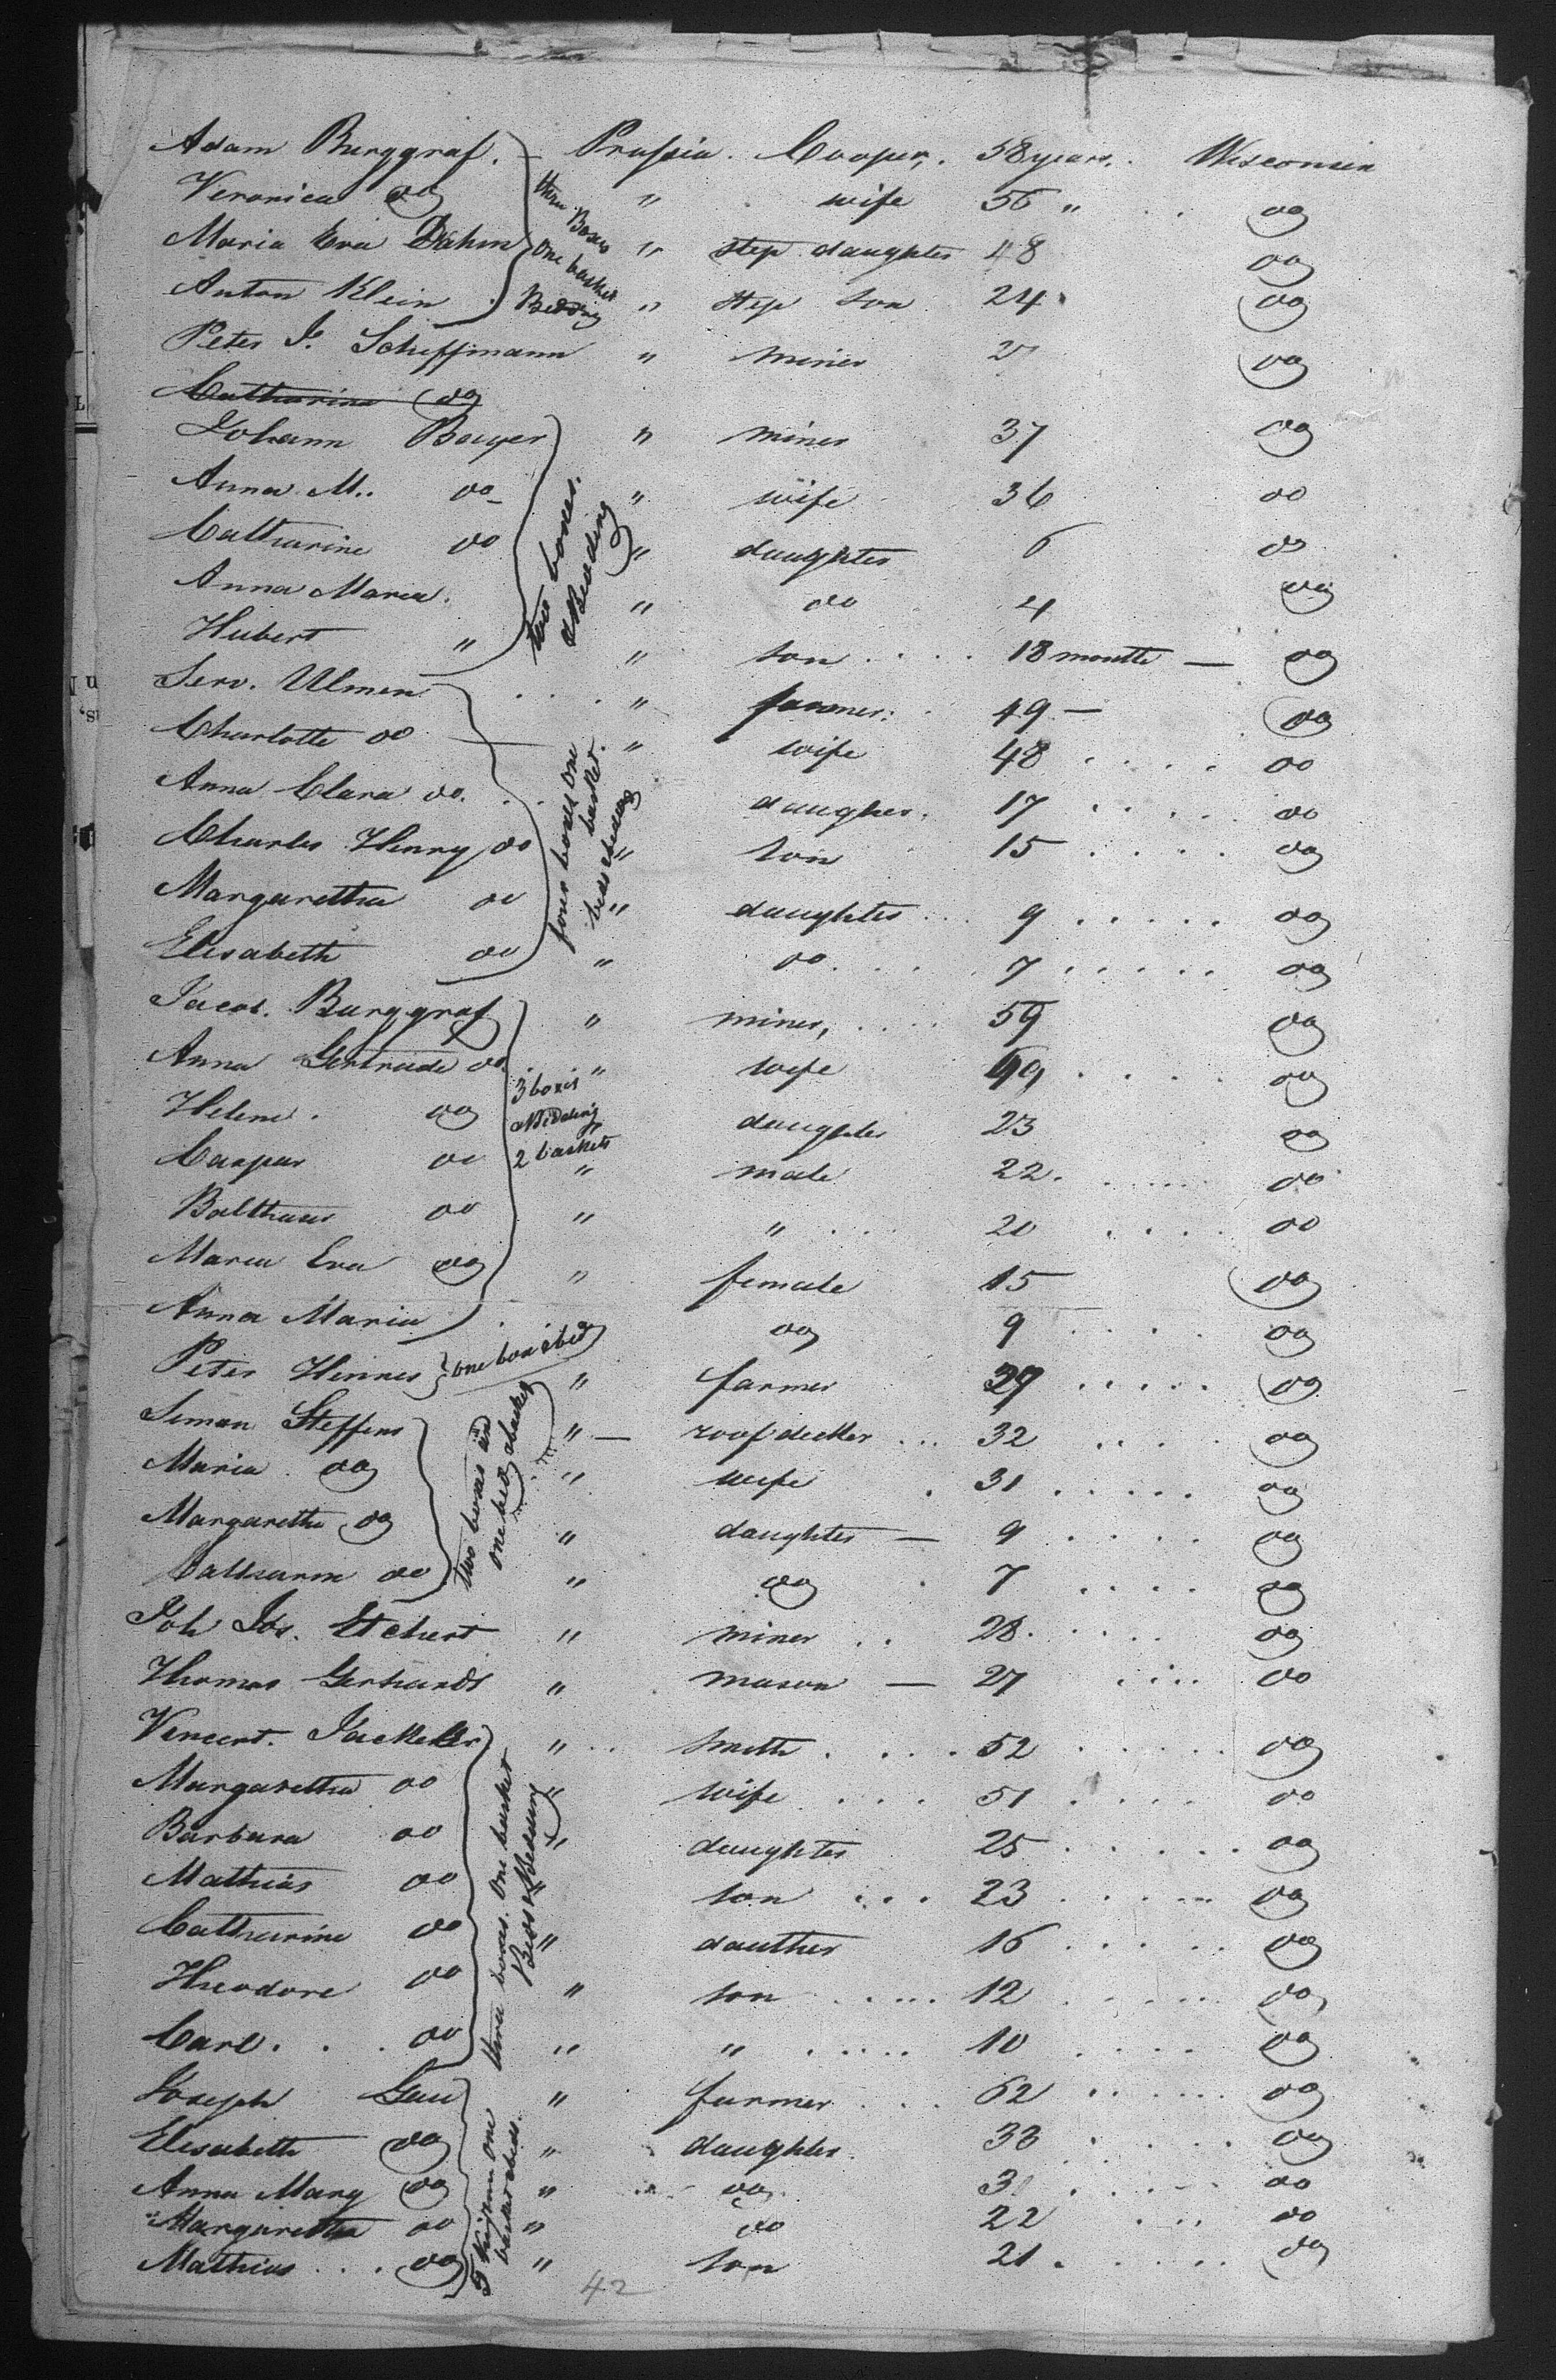 Adam Burggraf. – Prussia. Cooper, 58 years. Wisconsin
Veronica do " wife 56 " do
Maria Eva Dahm " step daughter 48 do
Anton Klein " step son 24 do
three Boxes
One basket
Bedding
Peter J. Schiffmann " miner 2 do
Catharina do
Johann Bayer " miner 37 do
Anna M.. do " wife 36 do
Catharine do " daughter 6 do
Anna Maria. " do 4 do
Hubert " " son .... 18 months — do
two boxes.
& Bedding
Serv. Ulmen ... " farmer. 49 — do
Charlotte do — " wife 48 .... do
Anna Clara do. .. daugher. 17 ..... do
Charles Henry do " son 15 .... do
Margaretha do " daughter .. 9 ..... do
Elisabeth do " do .... 7 ..... do
four boxes one
basket.
beds & bedding
Jacob. Burggraf " miner, .... 59 do
Anna Gertrude do. " wife 49 .... do
Helene. do daughter 23 do
Caspar do " male 22. ..... do
Balthasar do " " ... 20 .... do
Maria Eva do " female 15 do
Anna Maria .. do 9 .... do
3 boxes
& Bedding
2 baskets
Peter Hennes } one box & bed " farmer 39 ..... do
Simon Steffens " — roof decker ... 32 .... do
Maria. do " wife . 31 ..... do
Margaretha do " daughter — 9 .... do
Catharin do " do . 7 .... do
two boxes and
one bed & basket
Joh Jos. Etchert " miner .. 28. .... do
Thomas Gerhards " mason — 27 .... do
Vincent. Jackeler " .. smith .... 52 ..... do
Margaretha do " wife .... 51 .... do
Barbara do " daughter 25 ..... do
Mathias do " son ... 23 ..... do
Catharine do " dauther 16 ..... do
Theodore do " son ..... 12 ..... do
Carl. . . do " " ..... 10 .... do
three boxes. One basket
Beds & Bedding
Joseph Gau " farmer ... 62 ...... do
Elisabeth do " daughter. 33 .... do
Anna Mary do " do. 3 ..... do
Margaretha do " do 22 ... do
Mathias ... do " son 21. .... do
one
basket & beds.
42